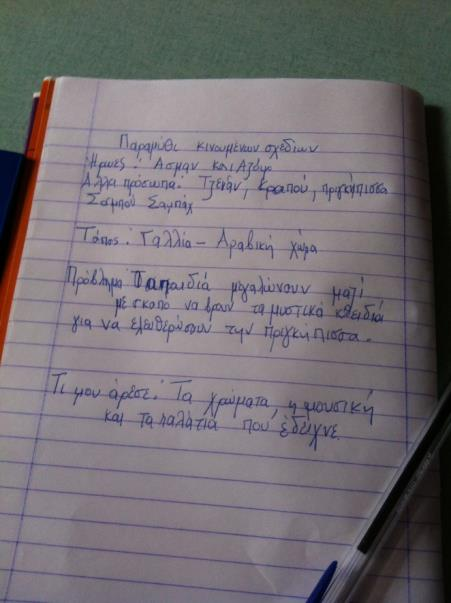 Παραμύθι κινουμένων σχεδίων
Ήρωες: Ασμάν και Αζόυρ
Άλλα πρόσωπα: Τζενάν, Κραπού, πριγκήπισσα
Σαμπάχ
Τόπος: Γαλλία - Αραβική χώρα
Πρόβλημα: Τα παιδιά μεγαλώνουν μαζί
με σκοπό να βρουν τα μυστικά κλειδιά
για να ελευθερώσουν την πριγκήπισσα.
Τι μου άρεσε: Τα χρώματα, η μουσική
και τα παλάτια που έδειχνε.